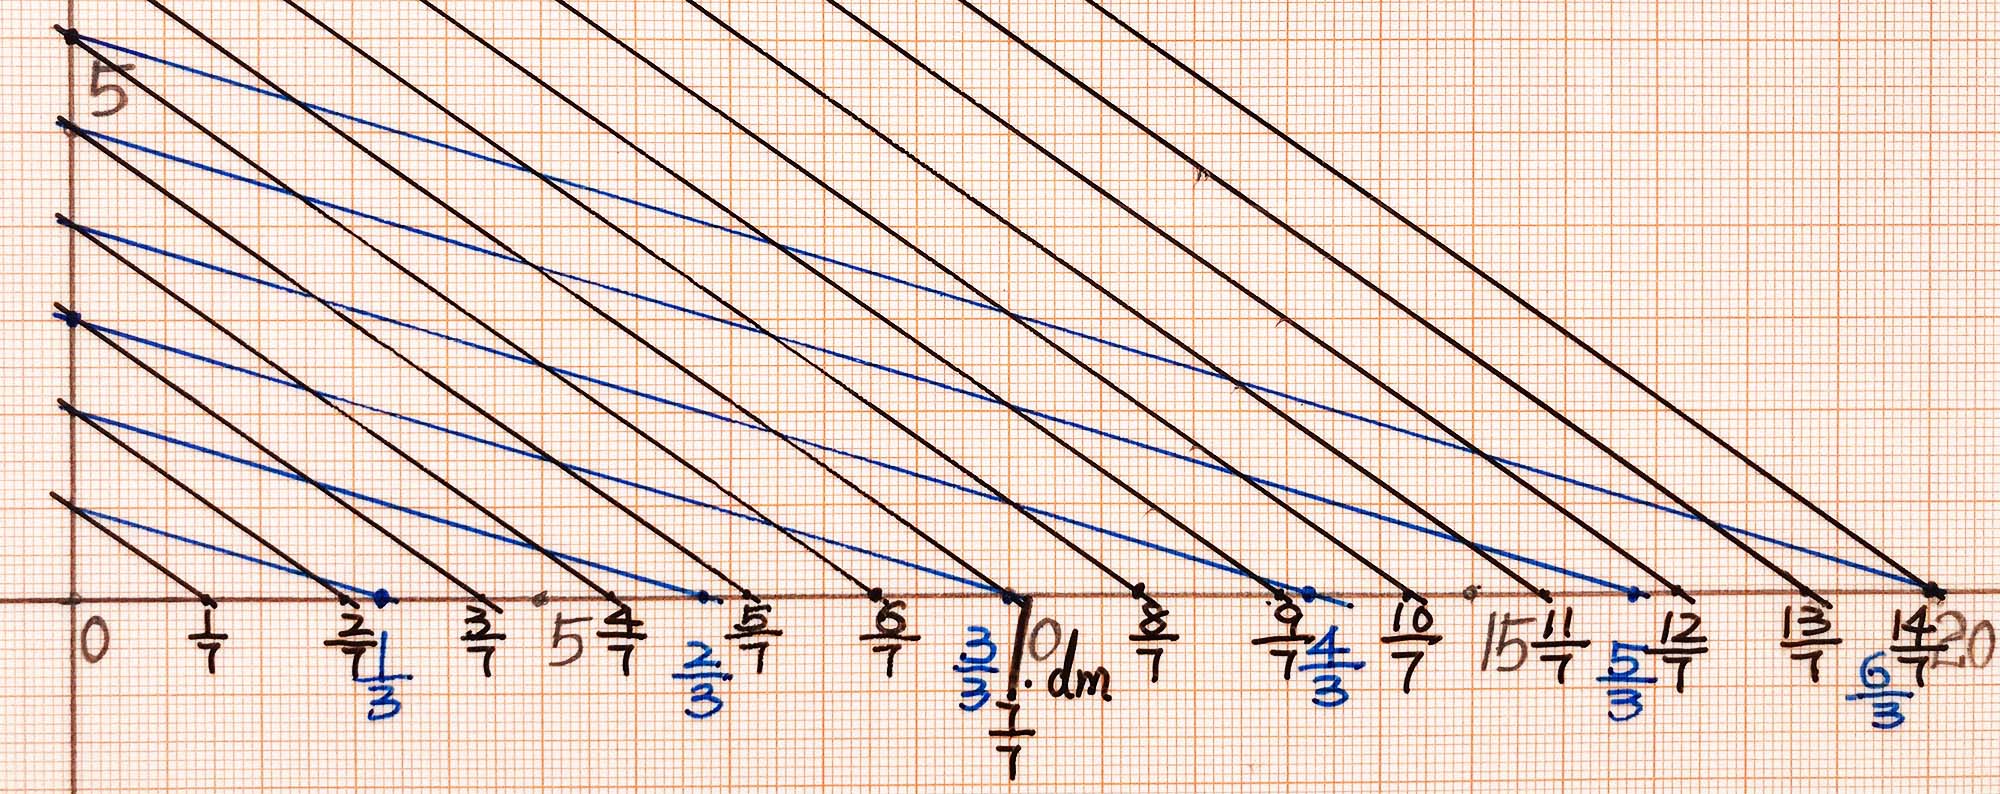 5
0
1/7
2/7
1/3
3/7
5
4/7
2/3
5/7
6/7
3/3
10
1.dm
7/7
8/7
9/7
4/3
10/7
15
11/7
5/3
12/7
13/7
14/7
6/3
20